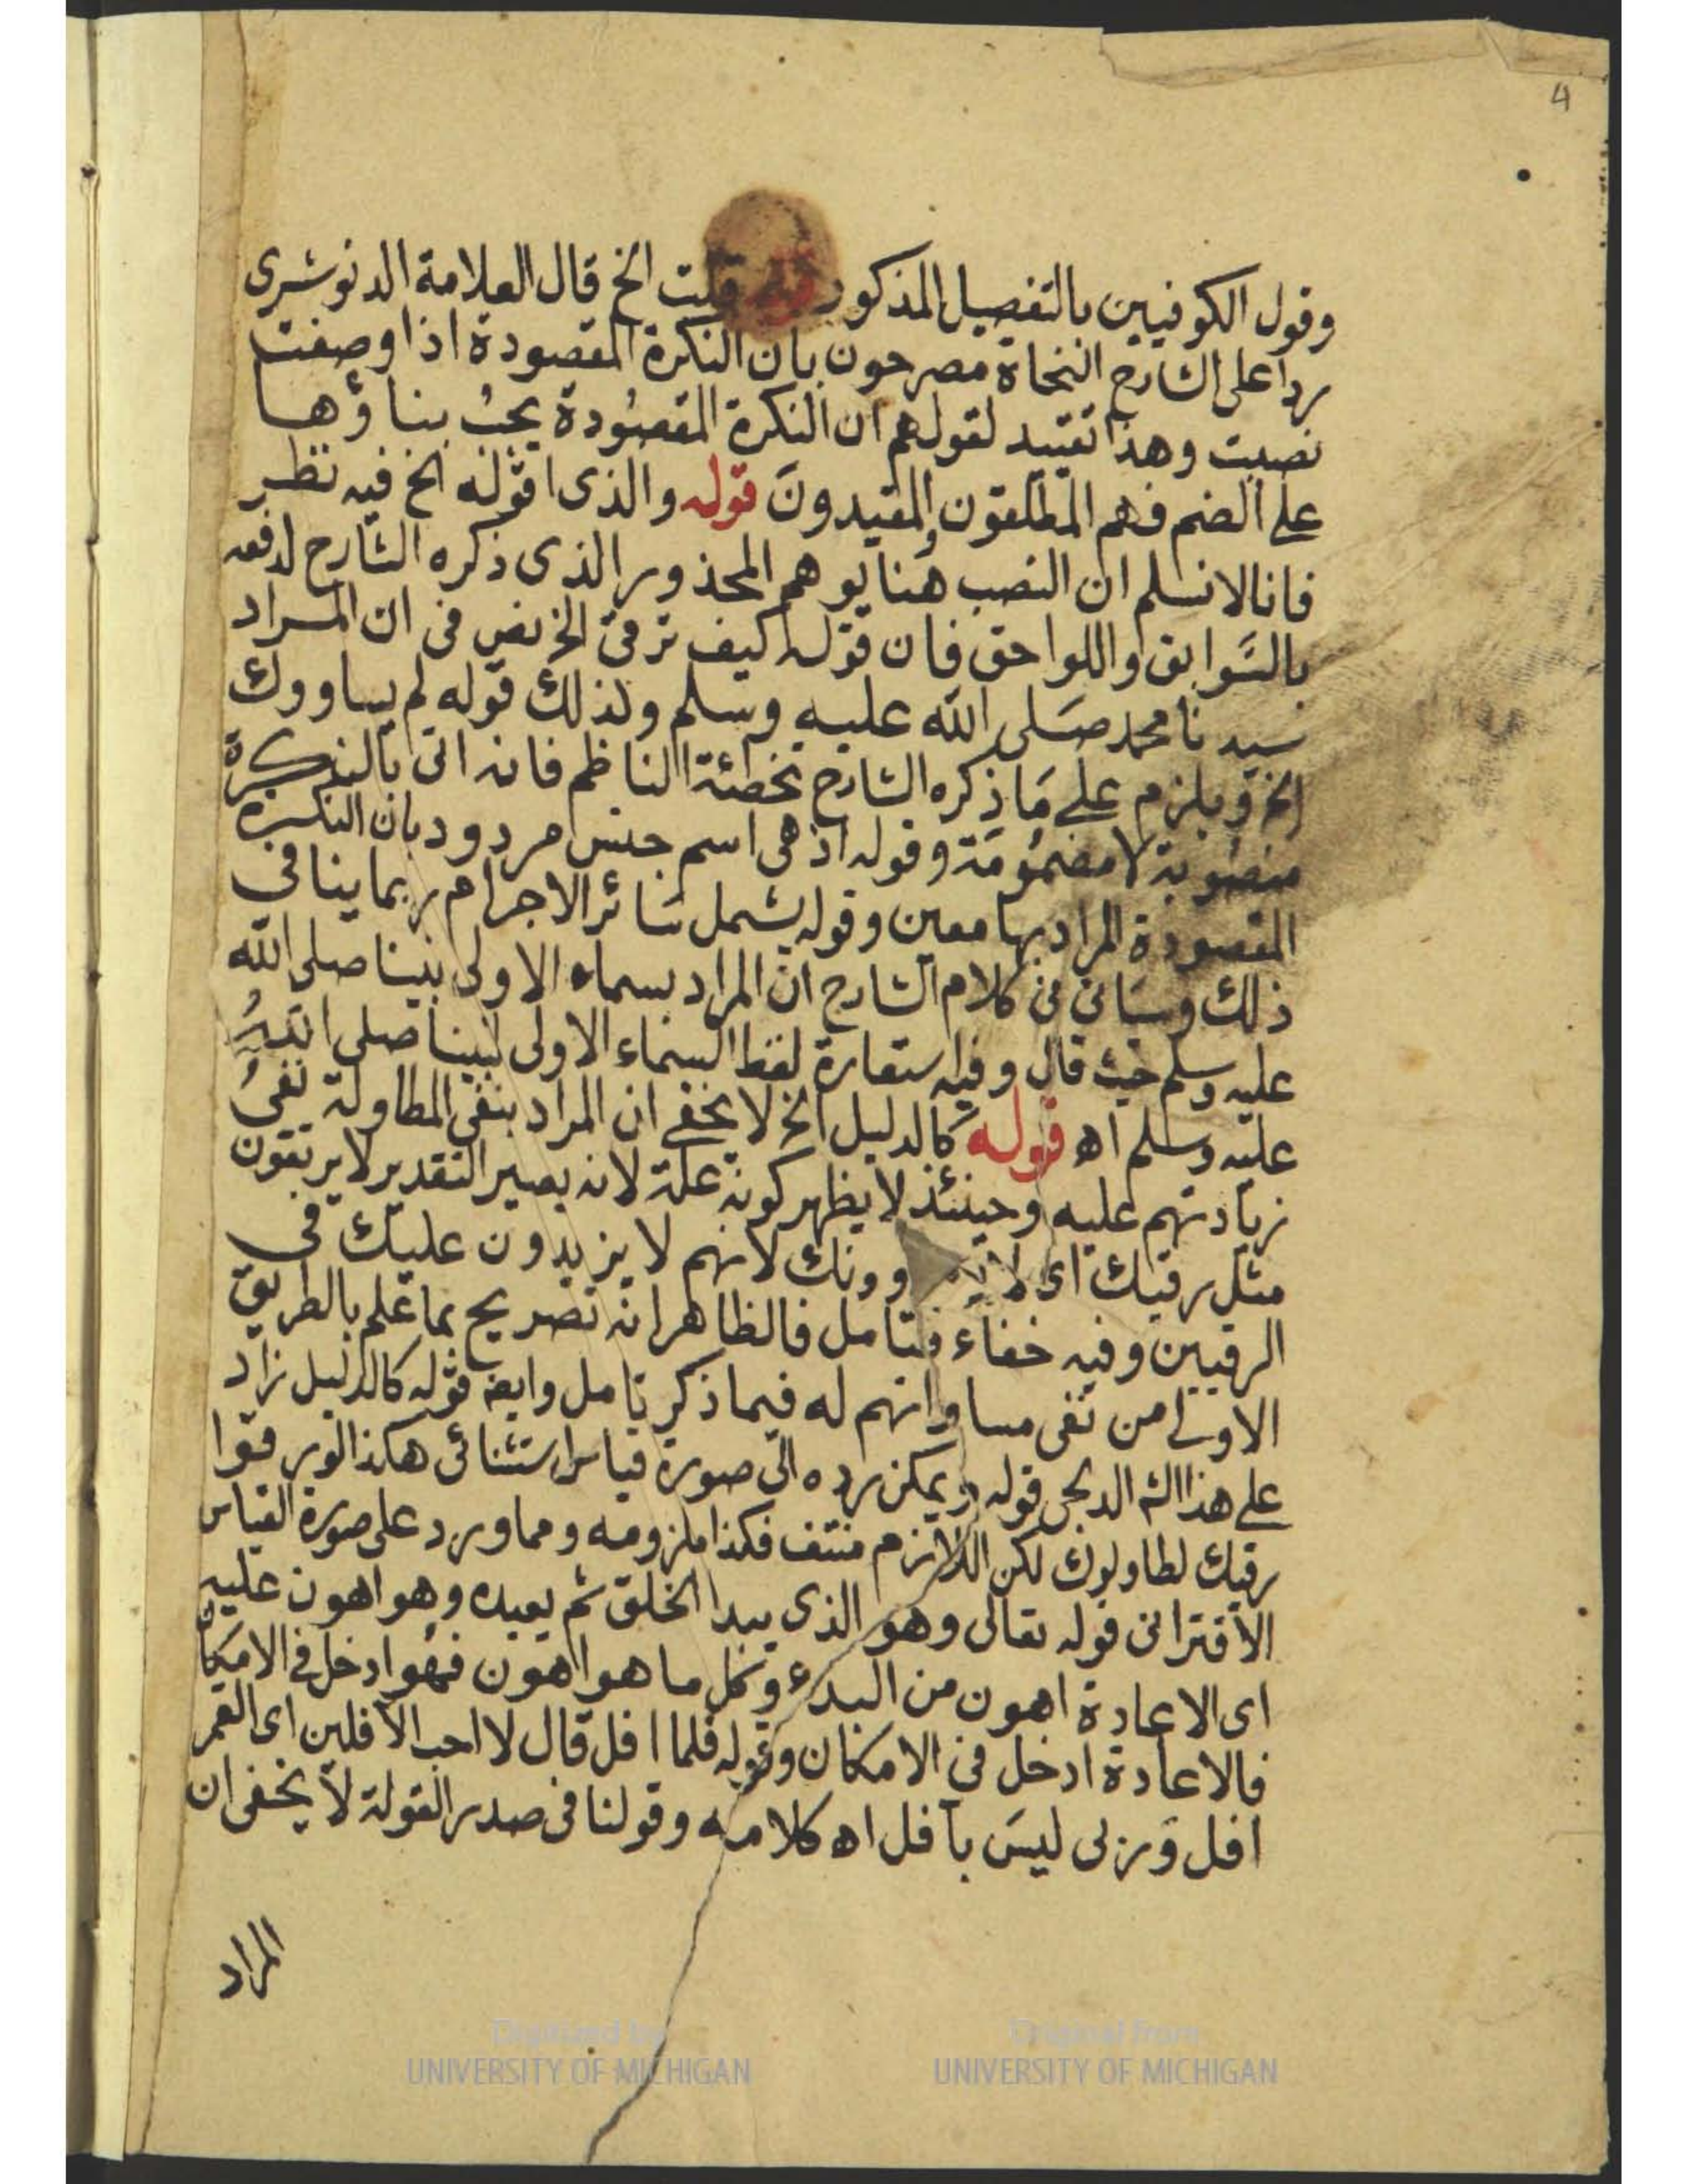 4
وقول الكوفيين بالتفصيل المذكور قوله قلت الخ قال العلامة الدنوشرى
ردا على الشارح النحاة مصرحون بان النكرة المقصودة اذا وصفت
نصبت وهذا تقييد لقولهم ان النكرة المقصودة يجب بناؤها
على الضم فهم المطلقون والمقيدون قوله والذى اقوله الخ فيه نظر
فانا لا نسلم ان النصب هنا يوهم المحذور الذى ذكره الشارح لدفعه
بالسوابق واللواحق فان قوله كيف ترقى الخ نص فى ان المراد
سيدنا محمد صلى الله عليه وسلم وكذلك قوله لم يساووك
الخ ويلزم على ما ذكره الشارح تخطئة الناظم فانه اتى بالنكرة
منصوبة لا مضمومة وقوله اذ هى اسم جنس مردود بان النكرة
المقصودة المراد بها معين وقوله يشمل سائر الاجرام ربما ينافى
ذلك وسياتى فى كلام الشارح ان المراد بسماء الاولى نبينا صلى الله
عليه وسلم حيث قال وفيه استعارة لفظ السماء الاولى لنبينا صلى الله
عليه وسلم اه قوله كالدليل الخ لا يخفى ان المراد بنفى المطاولة نفى
زيادتهم عليه وحينئذ لا يظهر كونه علة لانه يصير التقدير لا يرتقون
مثل رقيك اى لا وونك لانهم لا يزيدون عليك فى
الرقيين وفيه خفاء فتامل فالظاهر انه تصريح بما علم بالطريق
الاولى من نفى مساواتهم له فيما ذكر تامل وايض قوله كالدليل زاد
على هذا الشم الدلجى قوله ويمكن رده الى صورة قياس استثنائى هكذا لو رقوا
رقيك لطاولوك لكن اللازم منتف فكذا ملزومه ومما ورد على صورة القياس
الاقترانى قوله تعالى وهو الذى يبدا الخلق ثم يعيده وهو اهون عليه
اى الاعادة اهون من البدء وكل ما هو اهون فهو ادخل فى الامكان
فالاعادة ادخل فى الامكان وقوله فلما افل قال لا احب الآفلين اى القمر
افل وربى ليس بآفل اه كلامه وقولنا فى صدر القولة لا يخفى ان
المراد
Digitized by
UNIVERSITY OF MICHIGAN
Original from
UNIVERSITY OF MICHIGAN